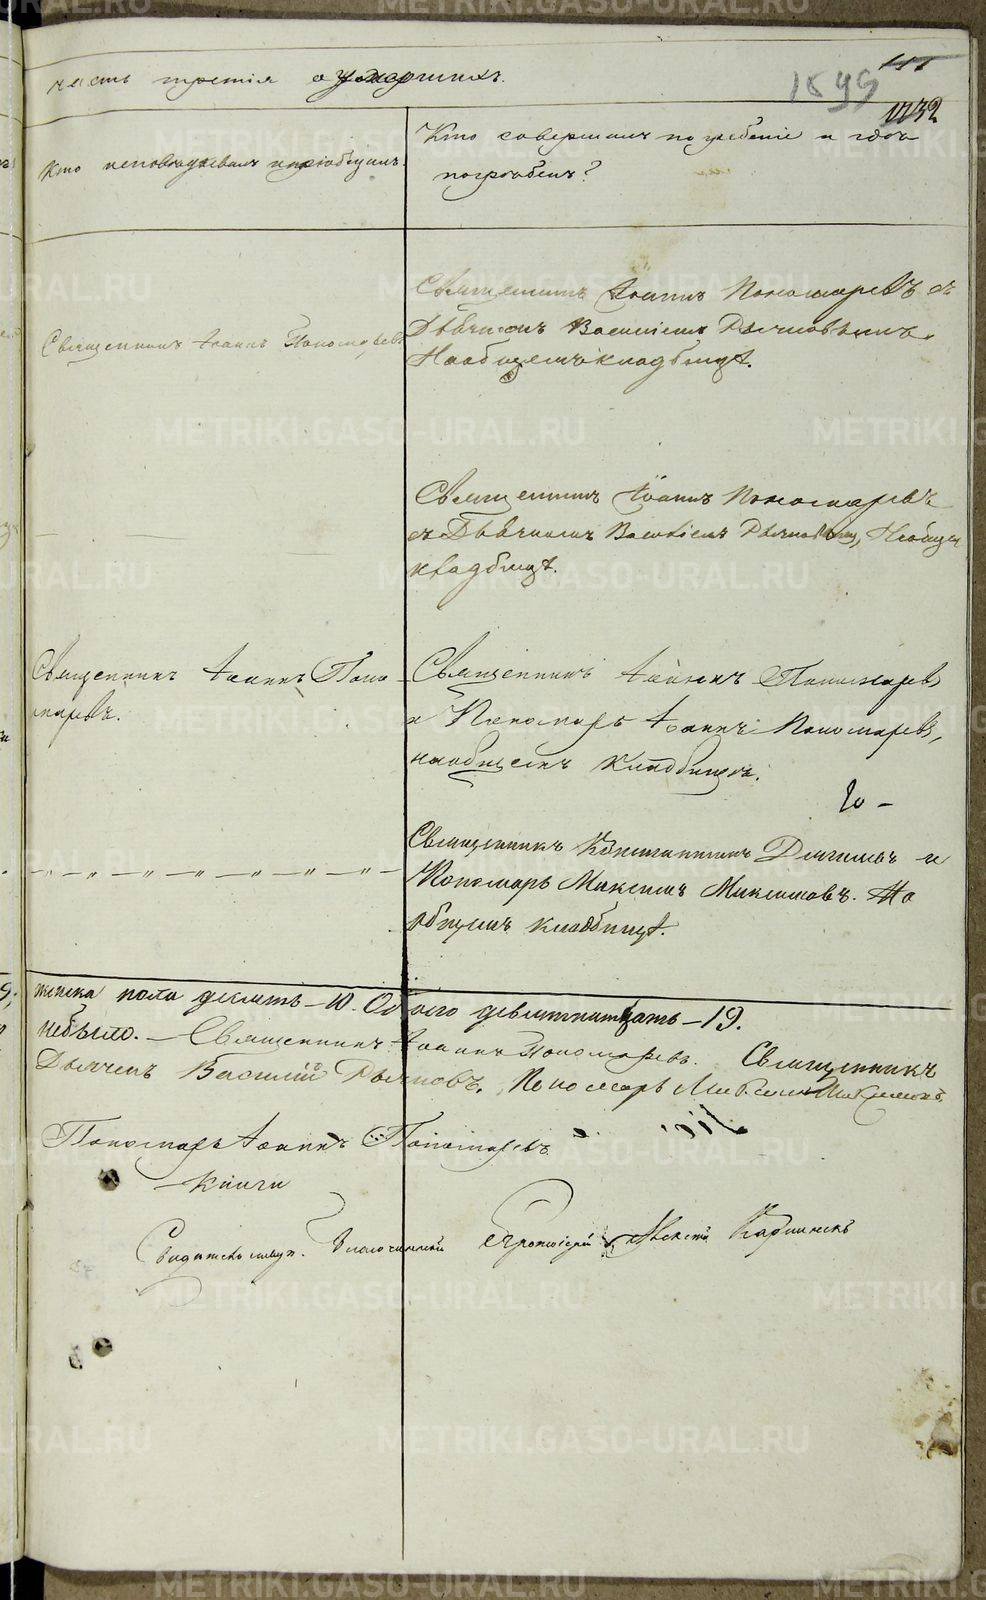 часть третія о умершихъ.
1899
1132
Кто исповѣдывалъ и пріобщалъ.
Кто совершалъ погребеніе и гдѣ
погребенъ?
Священникъ Іоаннъ Пономаревъ
Священникъ Іоаннъ Пономаревъ съ
Дьячкомъ Василіемъ
На общемъ кладбищѣ.
Священникъ Іоаннъ Пономаревъ
съ Дьячкомъ Василіемъ
кладбищѣ.
Священникъ Іоаннъ Поно-
маревъ.
Священникъ Іоаннъ Пономаревъ
и Пономарь Іоаннъ Пономаревъ,
на общемъ кладбищѣ.
Священникъ Константинъ и
Пономарь Максимъ Максимовъ. На
общемъ кладбищѣ.
женска пола десять – 10. Обоего девятнатцать – 19.
небыло. – Священникъ Іоаннъ Пономаревъ. Священникъ
Дьячекъ Василій Пономарь Максимъ Максимовъ
Пономарь Іоаннъ Пономаревъ
книги
Свидѣтельствов. Благочинный Протоіерей Алексій
METRIKI.GASO-URAL.RU